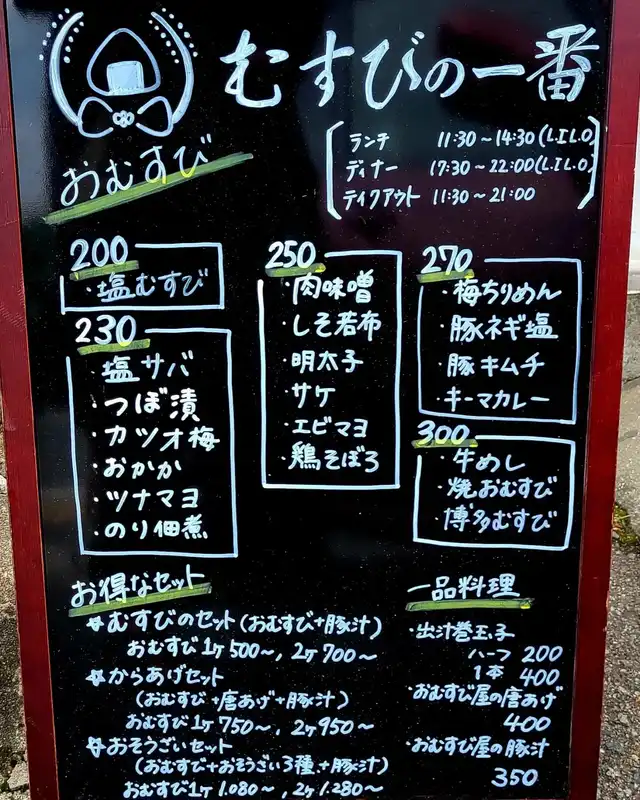 むすびの一番
ランチ 11:30~14:30(L.I.L.O)
ディナー 17:30~22:00(L.I.L.O)
テイクアウト 11:30~21:00
おむすび
200
・塩むすび
230
・塩サバ
・つぼ漬
・カツオ梅
・おかか
・ツナマヨ
・のり佃煮
250
・肉味噌
・しそ若布
・明太子
・サケ
・エビマヨ
・鶏そぼろ
270
・梅ちりめん
・豚ネギ塩
・豚キムチ
・キーマカレー
300
・牛めし
・焼おむすび
・博多むすび
お得なセット
むすびのセット(おむすび+豚汁)
おむすび1ヶ500~, 2ヶ700~
からあげセット
(おむすび+唐あげ+豚汁)
おむすび1ヶ750~, 2ヶ950~
おそうざいセット
(おむすび+おそうざい3種+豚汁)
おむすび1ヶ1.080~, 2ヶ1.280~
一品料理
・出汁巻玉子
ハーフ 200
1本 400
・おむすび屋の唐あげ
400
・おむすび屋の豚汁
350